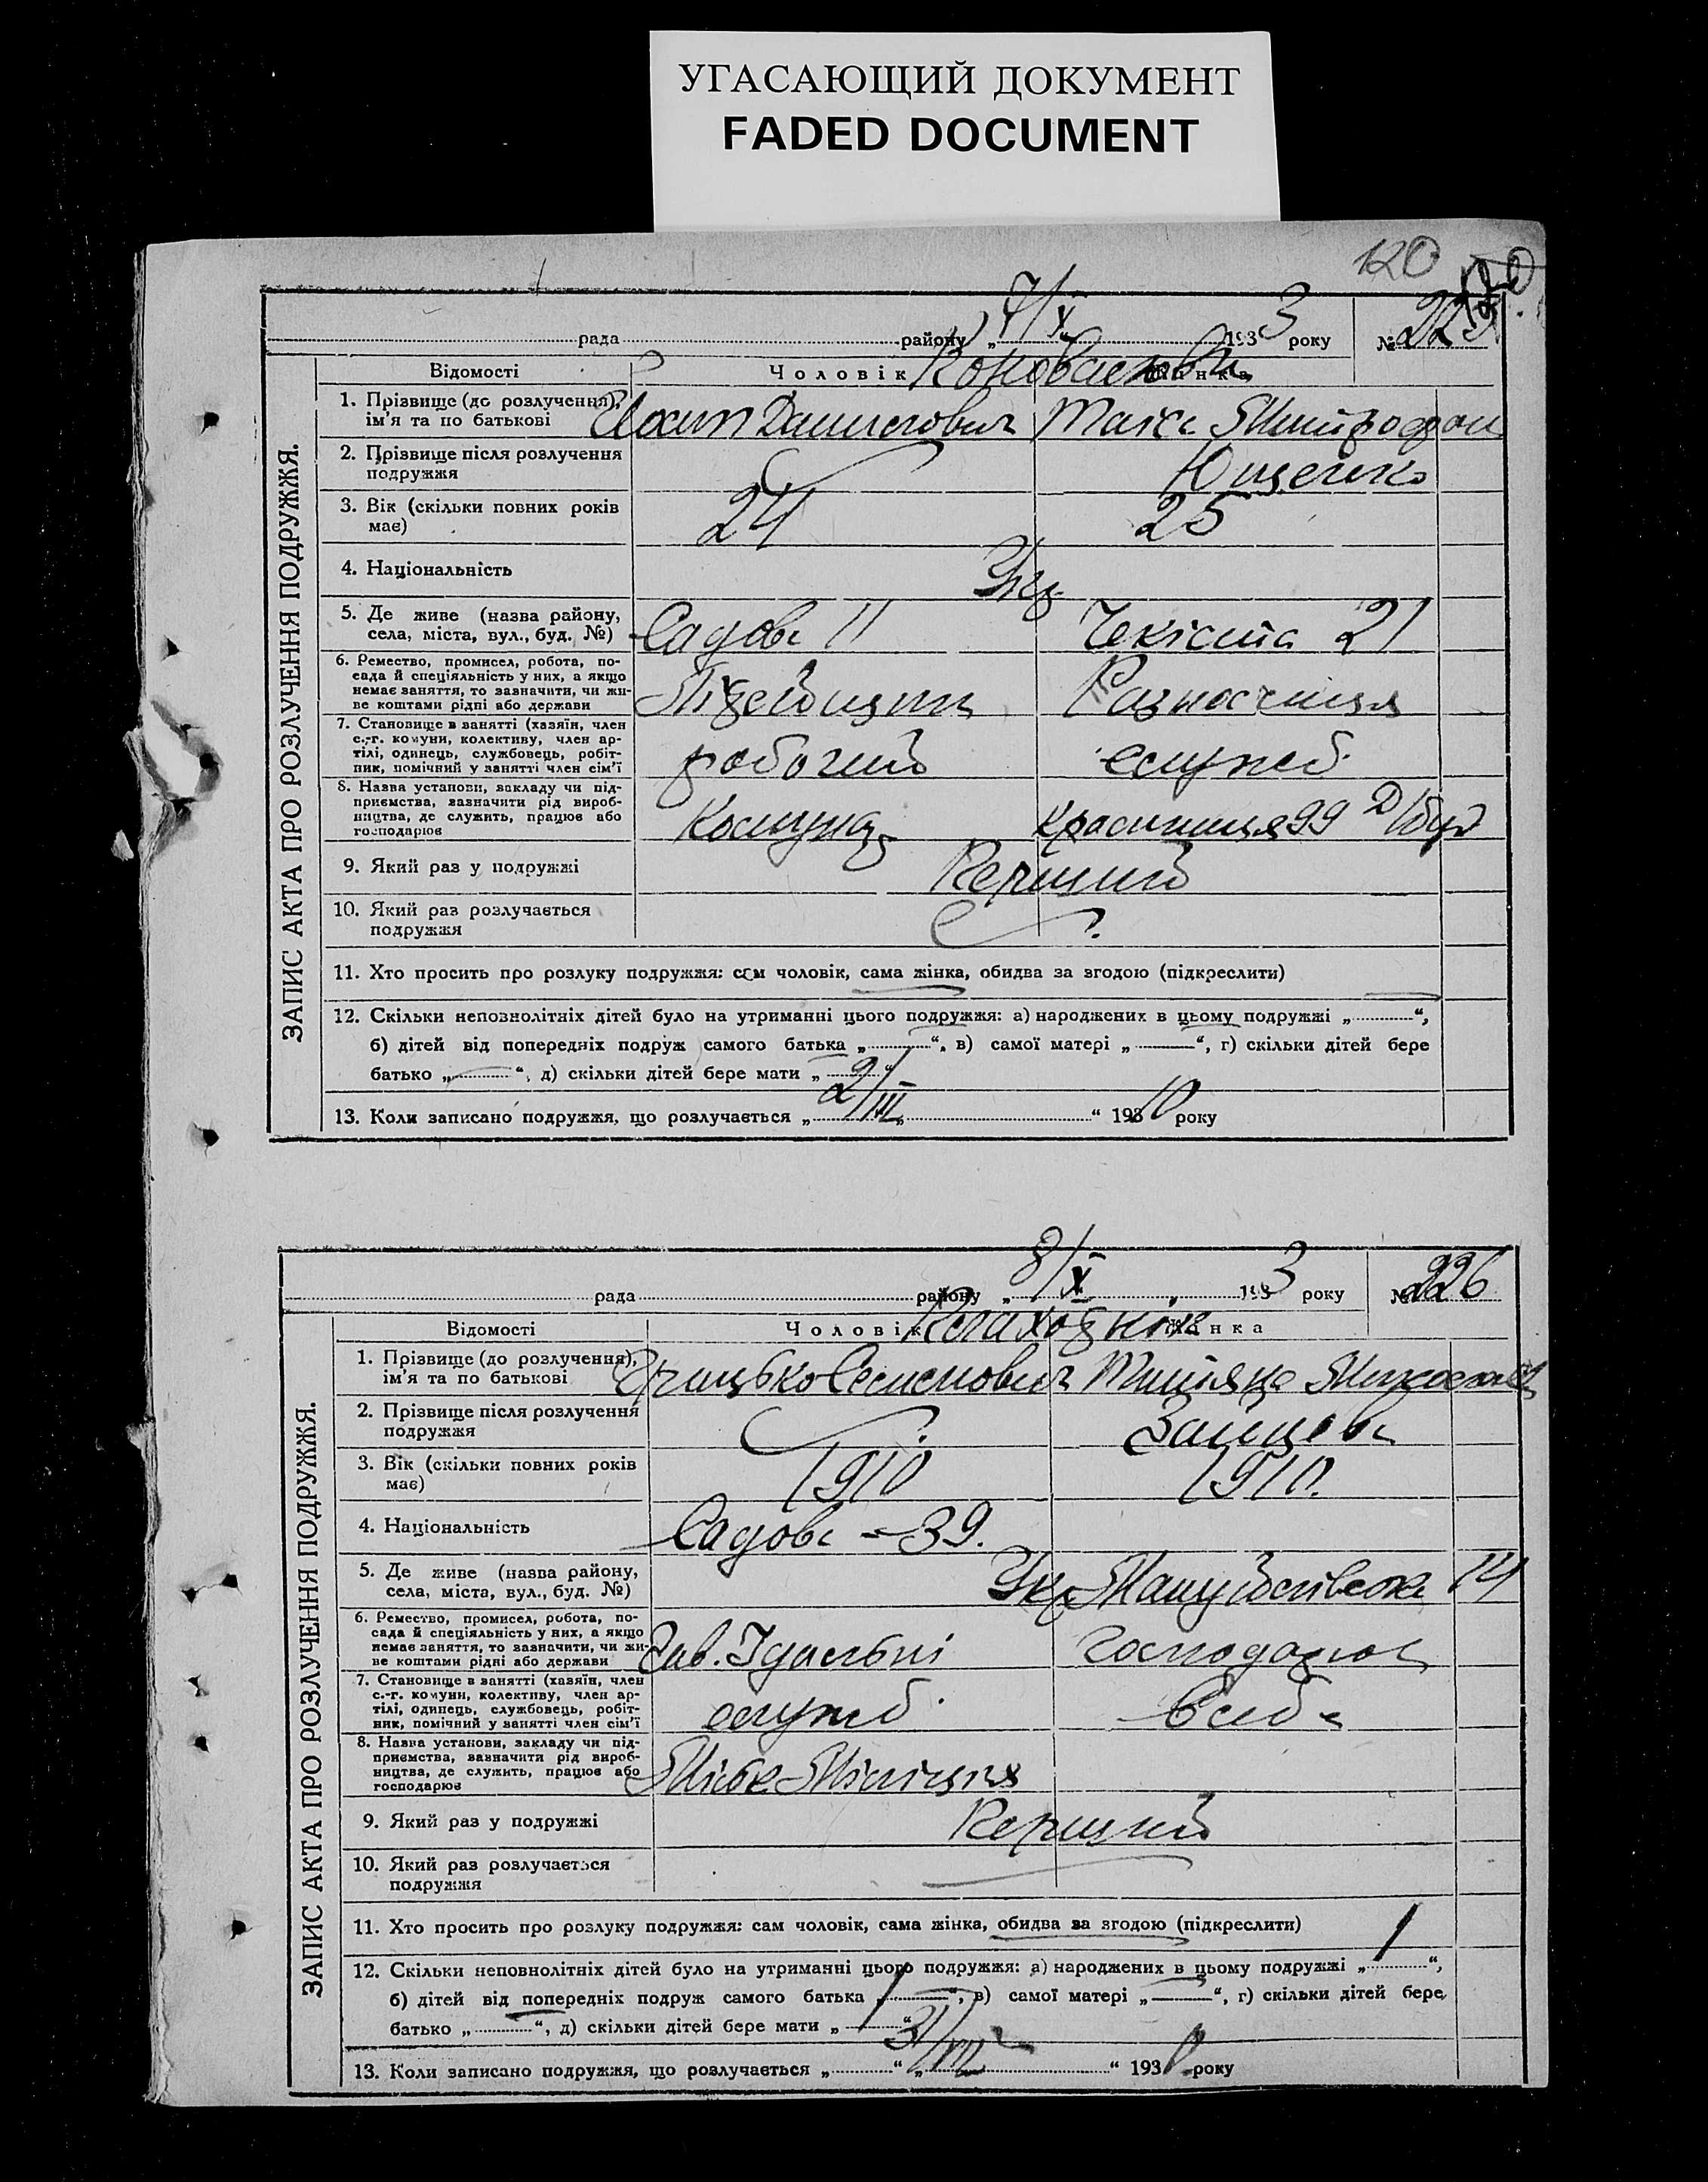 УГАСАЮЩИЙ ДОКУМЕНТ
FADED DOCUMENT
120
ЗАПИС АКТА ПРО РОЗЛУЧЕННЯ ПОДРУЖЖЯ.
рада району „ 7/X 1933 року №
Відомості Чоловік Жінка
1. Прізвище (до розлучення), ім'я та по батькові
2. Прізвище після розлучення подружжя Ющенко
3. Вік (скільки повних років має) 24 25
4. Національність Укр
5. Де живе (назва району, села, міста, вул., буд. №) Садова 11 Чекіста 21
6. Ремество, промисел, робота, по-
сада й спеціяльність у них, а якщо
немає заняття, то зазначити, чи жи-
ве коштами рідні або держави
7. Становище в занятті (хазяїн, член
с.-г. комуни, колективу, член ар-
тілі, одинець, службовець, робіт-
ник, помічний у занятті член сім'ї робочий служб.
8. Назва установи, закладу чи під-
приємства, зазначити рід вироб-
ництва, де служить, працює або
господарює
9. Який раз у подружжі Перший
10. Який раз розлучається подружжя
11. Хто просить про розлуку подружжя: сам чоловік, сама жінка, обидва за згодою (підкреслити)
12. Скільки неповнолітніх дітей було на утриманні цього подружжя: а) народжених в цьому подружжі „ — “,
б) дітей від попередніх подруж самого батька „ — “, в) самої матері „ — “, г) скільки дітей бере
батько „ — “, д) скільки дітей бере мати „ “
13. Коли записано подружжя, що розлучається „ 2/III “ 1930 року
ЗАПИС АКТА ПРО РОЗЛУЧЕННЯ ПОДРУЖЖЯ.
рада району „ 8/X 1933 року № 226
Відомості Чоловік Жінка
1. Прізвище (до розлучення), ім'я та по батькові
2. Прізвище після розлучення подружжя Зайцева
3. Вік (скільки повних років має) 1910 1910.
4. Національність Садова - 39.
5. Де живе (назва району, села, міста, вул., буд. №) Укр 14
6. Ремество, промисел, робота, по-
сада й спеціяльність у них, а якщо
немає заняття, то зазначити, чи жи-
ве коштами рідні або держави Зав. Їдальні
7. Становище в занятті (хазяїн, член
с.-г. комуни, колективу, член ар-
тілі, одинець, службовець, робіт-
ник, помічний у занятті член сім'ї служб. в себе
8. Назва установи, закладу чи під-
приємства, зазначити рід вироб-
ництва, де служить, працює або
господарює Міліція
9. Який раз у подружжі Перший
10. Який раз розлучається подружжя
11. Хто просить про розлуку подружжя: сам чоловік, сама жінка, обидва за згодою (підкреслити)
12. Скільки неповнолітніх дітей було на утриманні цього подружжя: а) народжених в цьому подружжі „ 1 “,
б) дітей від попередніх подруж самого батька „ — “, в) самої матері „ — “, г) скільки дітей бере
батько „ — “, д) скільки дітей бере мати „ 1 “
13. Коли записано подружжя, що розлучається „ “ 1930 року